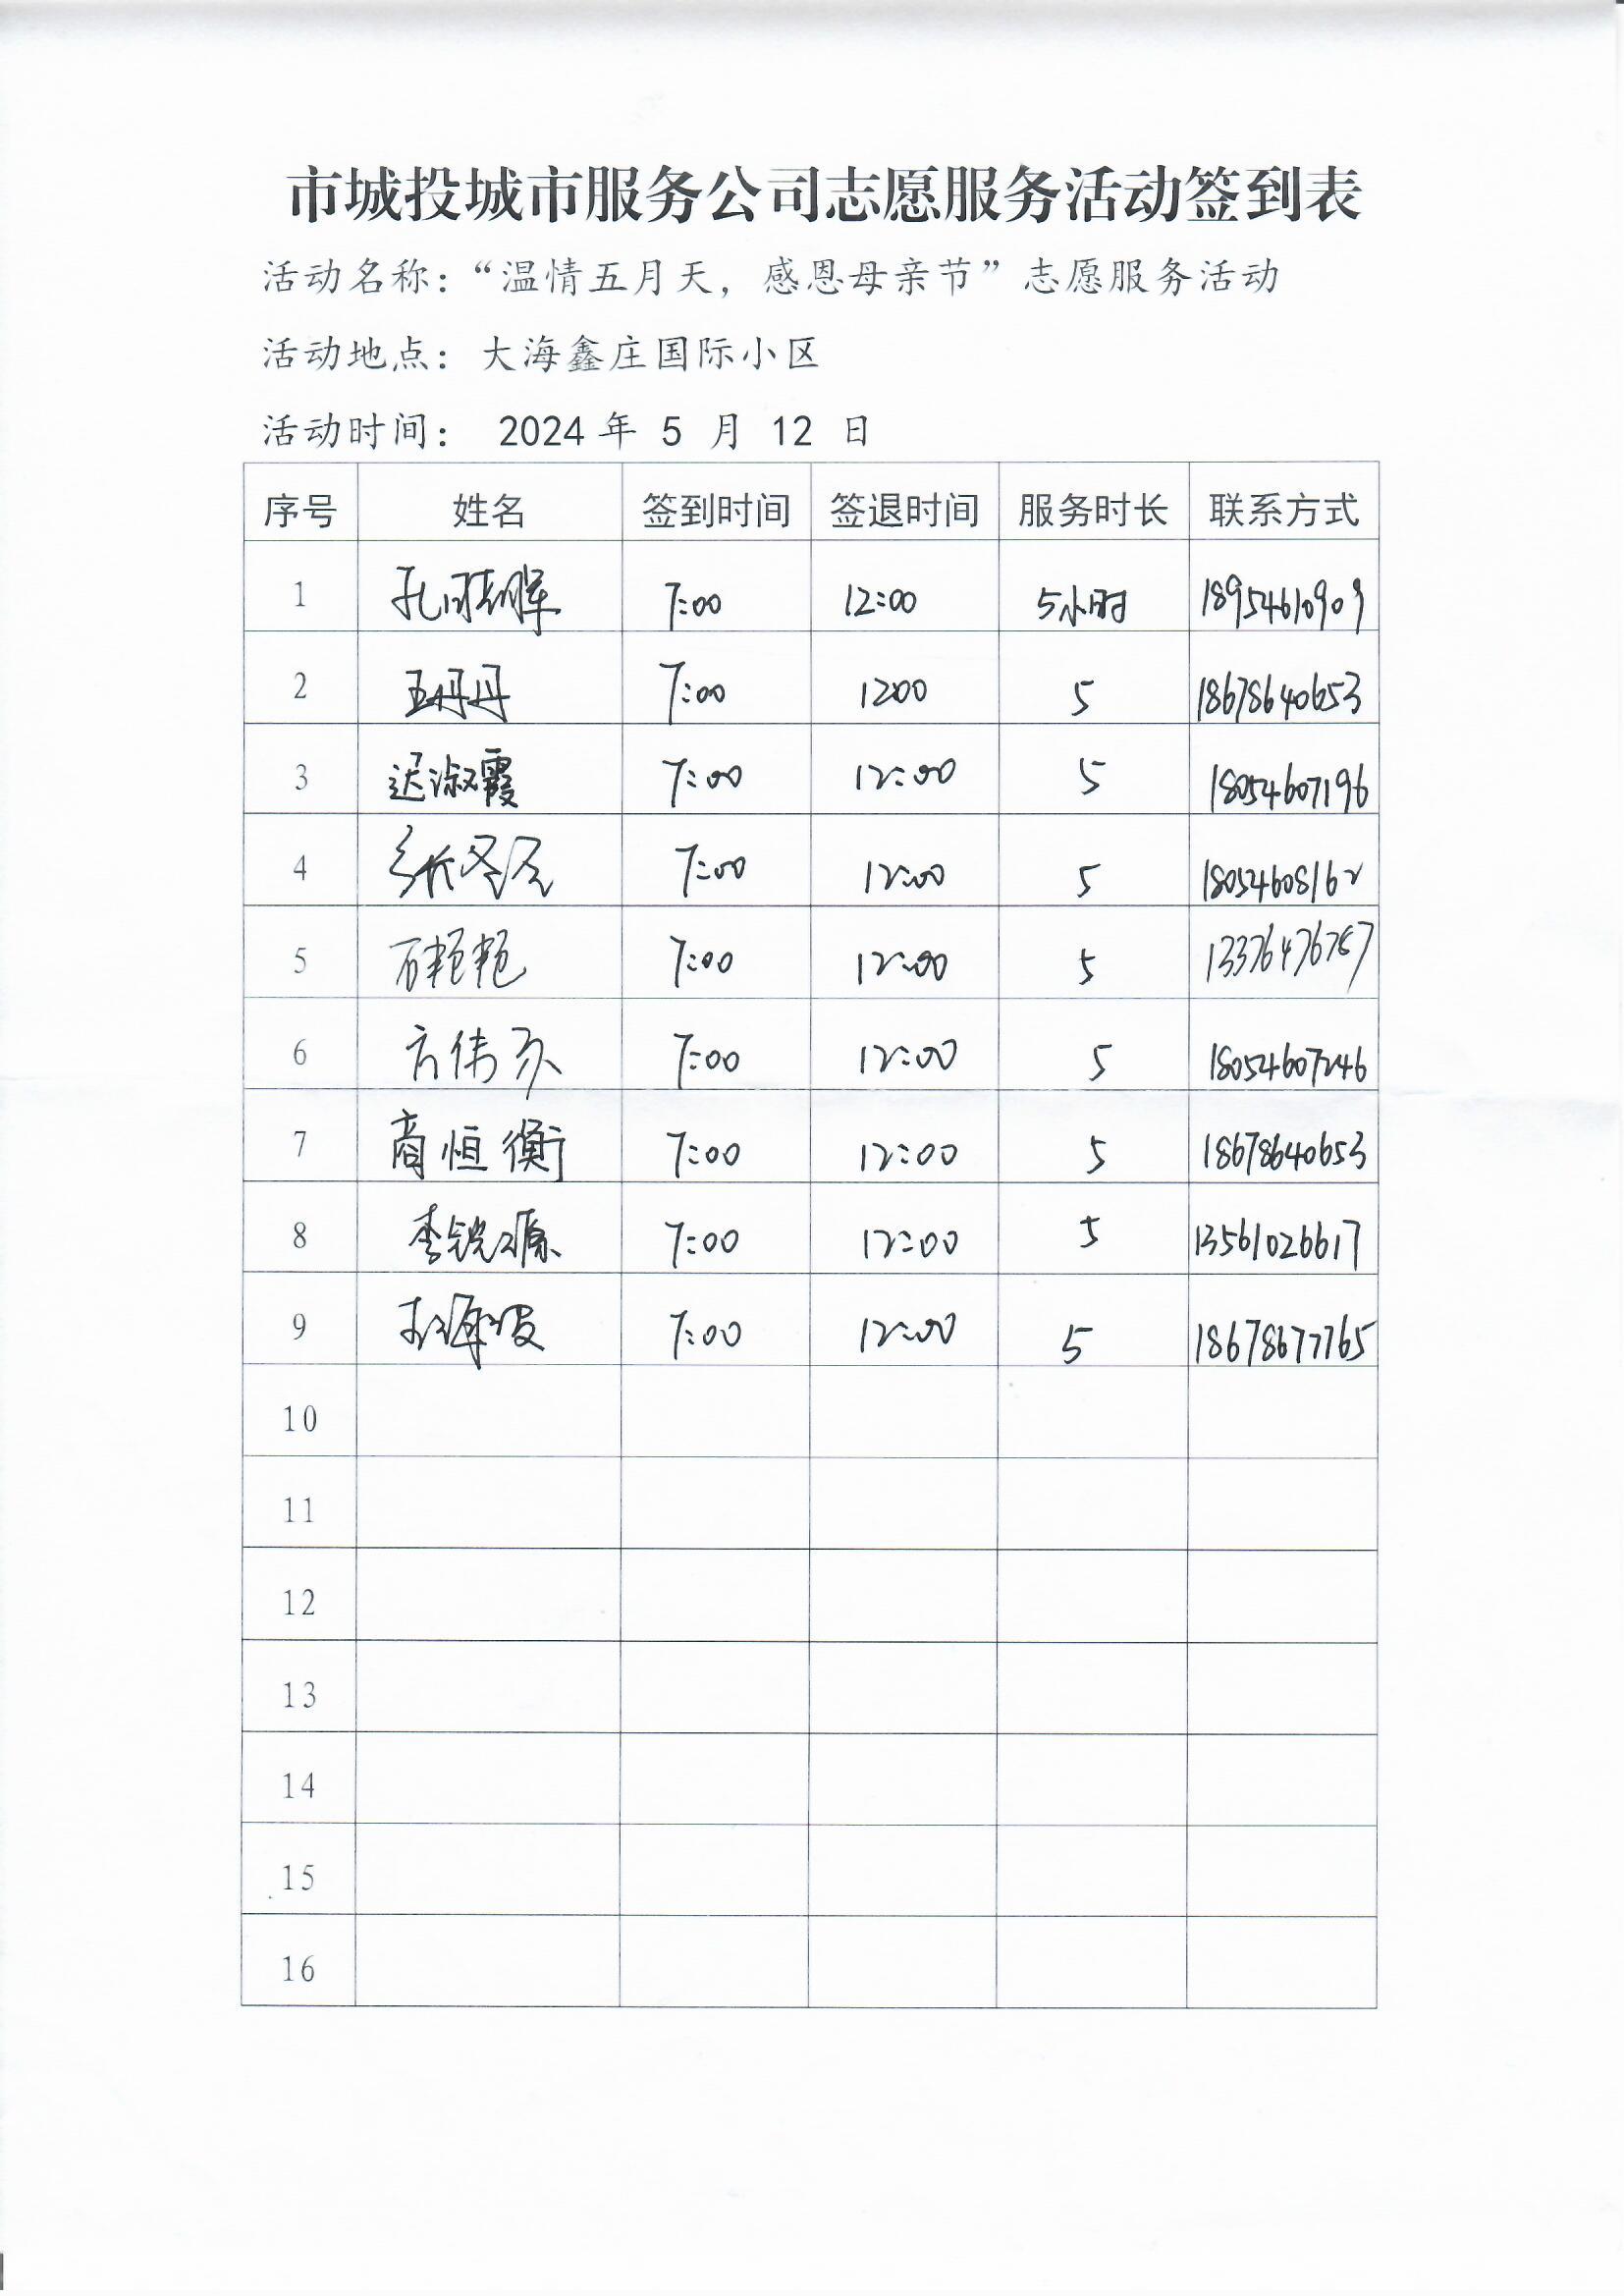 市城投城市服务公司志愿服务活动签到表
活动名称：“温情五月天，感恩母亲节”志愿服务活动
活动地点：大海鑫庄国际小区
活动时间： 2024年 5 月 12 日
序号 姓名 签到时间 签退时间 服务时长 联系方式
1 7:00 12:00 5小时 18954610909
2 王丹丹 7:00 1200 5 18678640653
3 迟淑霞 7:00 12:00 5 18054607196
4 7:00 12:00 5 18054608162
5 石艳艳 7:00 12:00 5
6 7:00 12:00 5 18054607246
7 商恒衡 7:00 12:00 5 18678640653
8 李锐源 7:00 12:00 5 13561026617
9 7:00 12:00 5 18678677765
10
11
12
13
14
15
16